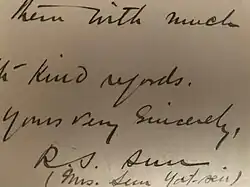 them with much
kind regards.
Yours very Sincerely,
R. S. Sun
(Mrs. Sun Yat-sen)